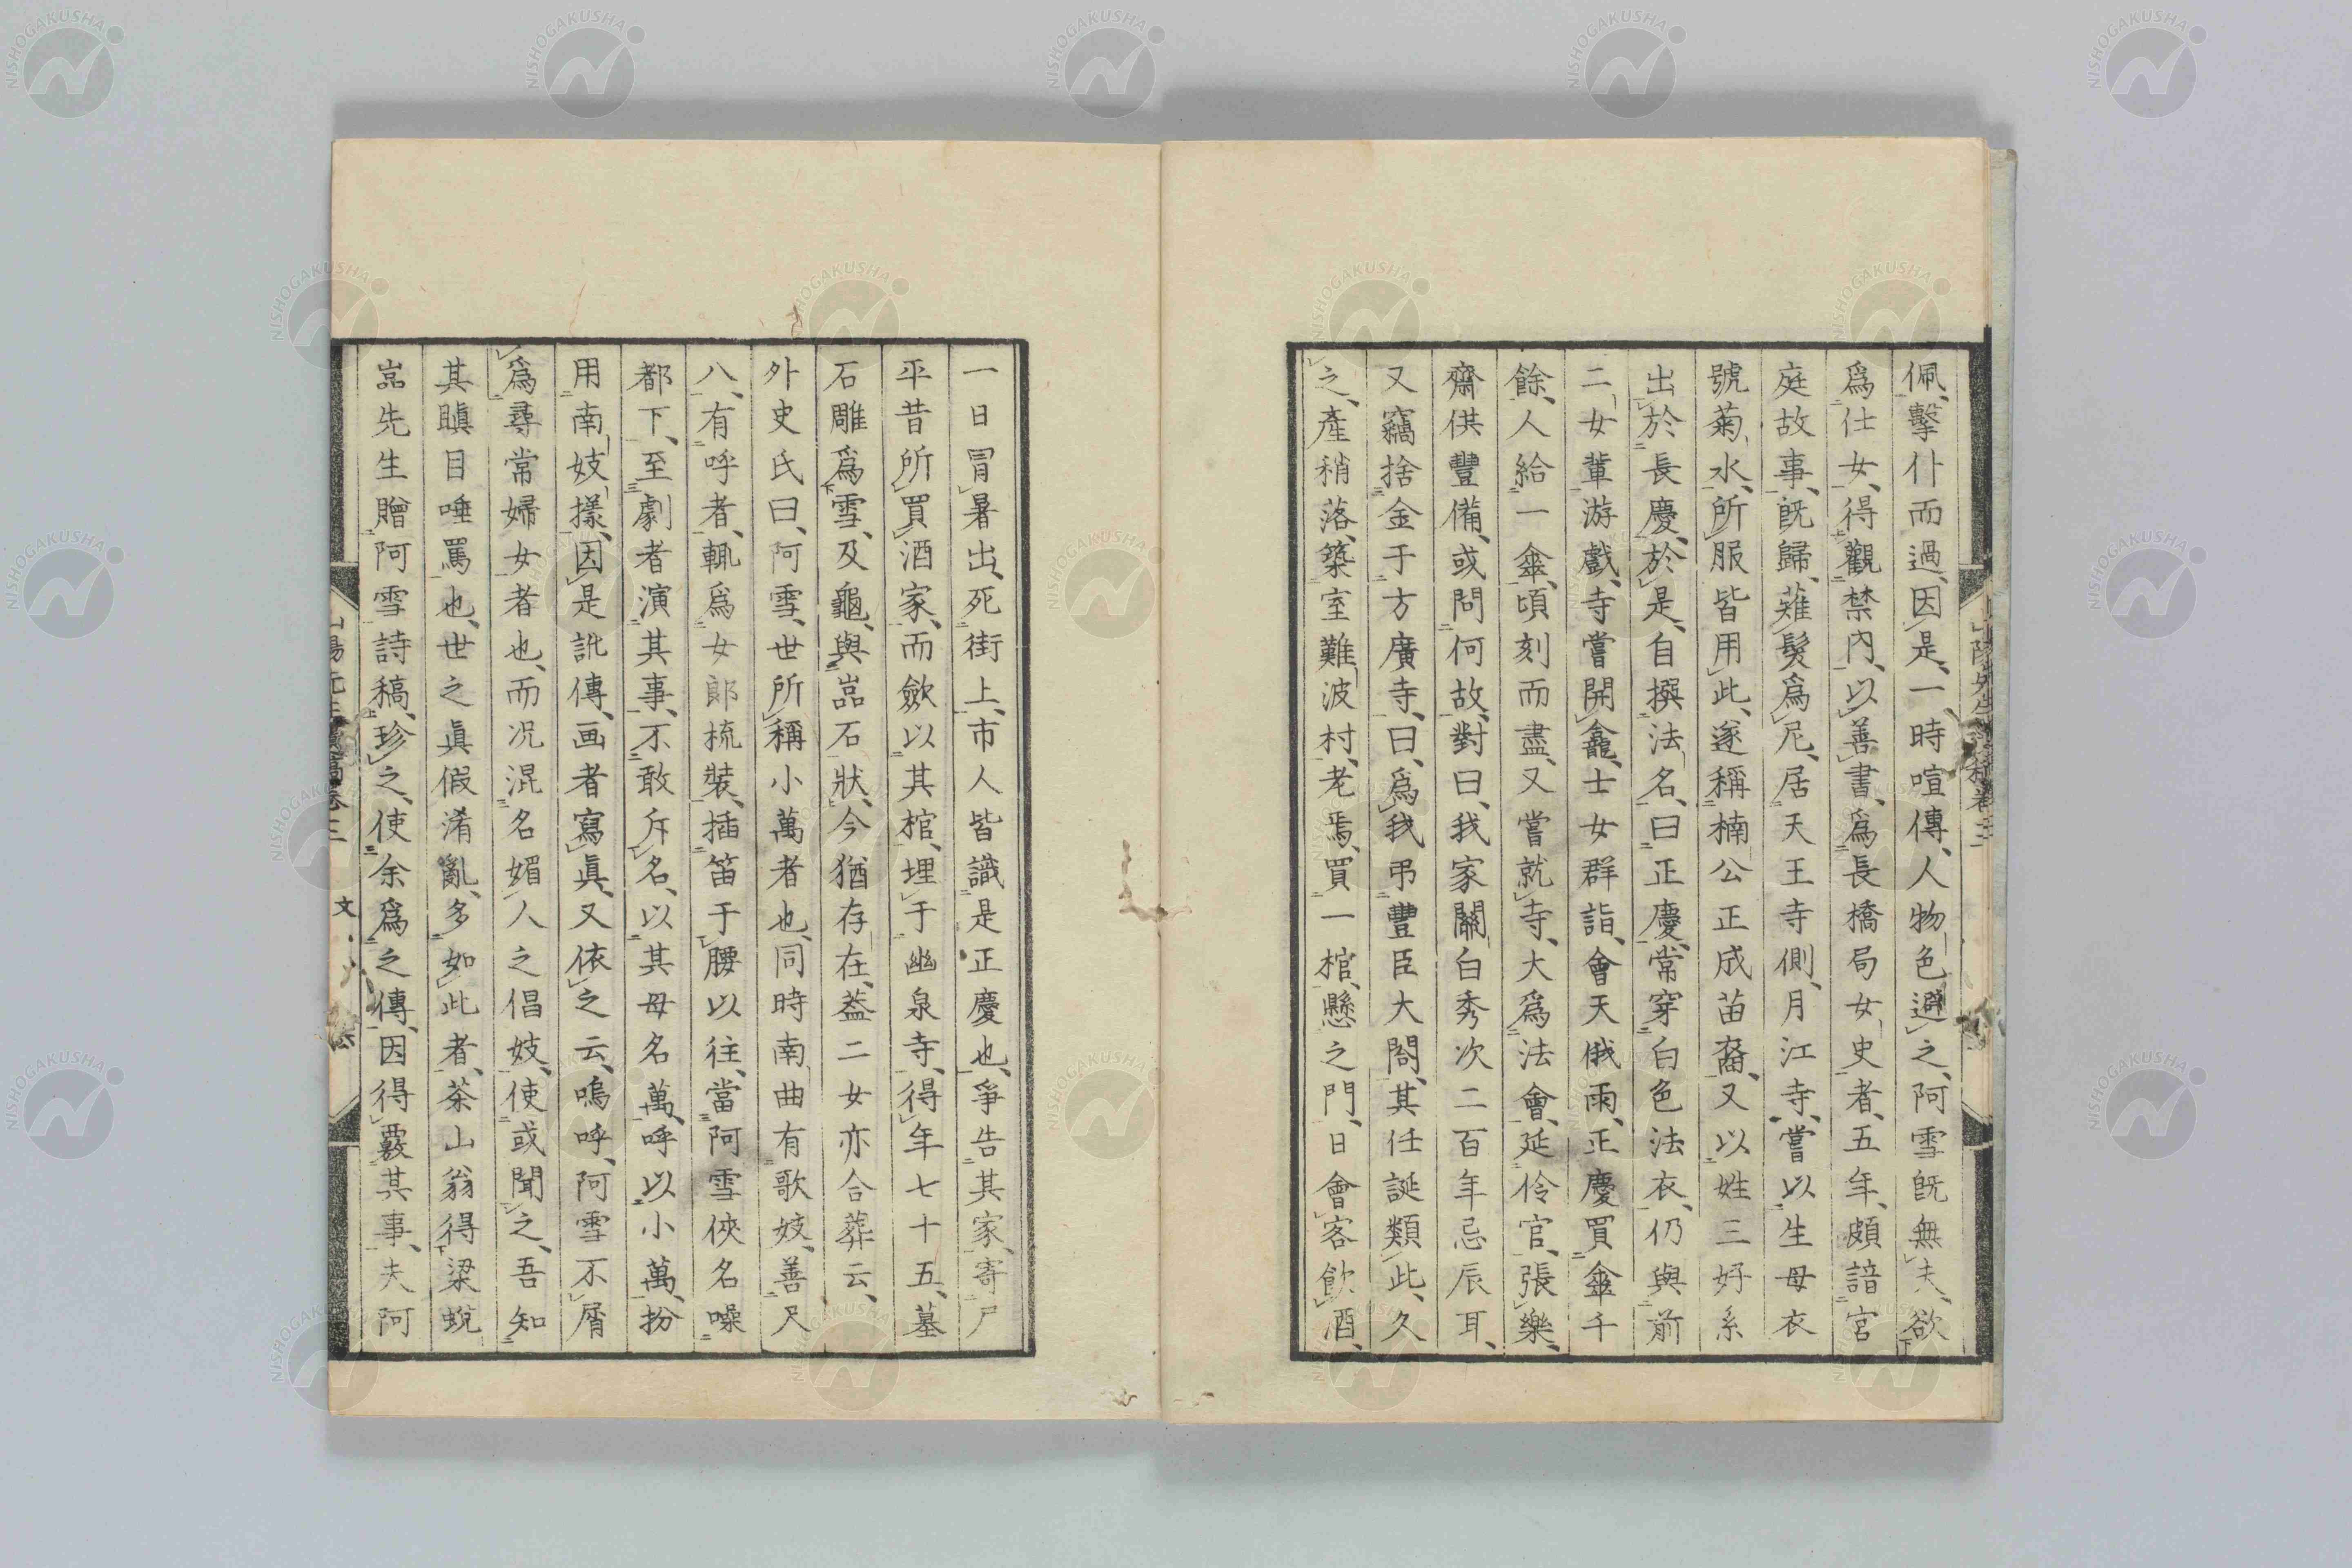 佩、擊仆而過、因是、一時喧傳、人物色避之、阿雪既無夫、欲
爲仕女、得觀禁內、以善書、爲長橋局女史者、五年、頗諳宮
庭故事、既歸、薙髮爲尼、居天王寺側、月江寺、嘗以生母衣
號菊水、所服皆用此、遂稱楠公正成苗裔、又以姓三好系
出於長慶、於是、自撰法名、曰正慶、常穿白色法衣、仍與前
二女輩游戲、寺嘗開龕、士女群詣、會天俄雨、正慶買傘千
餘、人給一傘、頃刻而盡、又嘗就寺、大爲法會、延伶官、張樂、
齋供豐備、或問何故、對曰、我家關白秀次二百年忌辰耳、
又竊捨金于方廣寺、曰、爲我弔豐臣大閤、其任誕類此、久
之、產稍落、築室難波村、老焉、買一棺、懸之門、日會客飲酒、
一日冐暑出、死街上、市人皆識是正慶也、爭告其家、寄尸
平昔所買酒家、而歛以其棺、埋于幽泉寺、得年七十五、墓
石雕爲雪、及龜、與嵓石狀、今猶存在、葢二女亦合葬云、
外史氏曰、阿雪、世所稱小萬者也、同時南曲有歌妓、善尺
八、有呼者、輒爲女郎梳裝、插笛于腰以往、當阿雪俠名噪
都下、至劇者演其事、不敢斥名、以其母名萬、呼以小萬、扮
用南妓㨾、因是訛傳、画者寫眞、又依之云、嗚呼、阿雪不屑
爲尋常婦女者也、而况混名媚人之倡妓、使或聞之、吾知
其瞋目唾罵也、世之眞假淆亂、多如此者、茶山翁得梁蛻
嵓先生贈阿雪詩稿、珍之、使余爲之傳、因得覈其事、夫阿